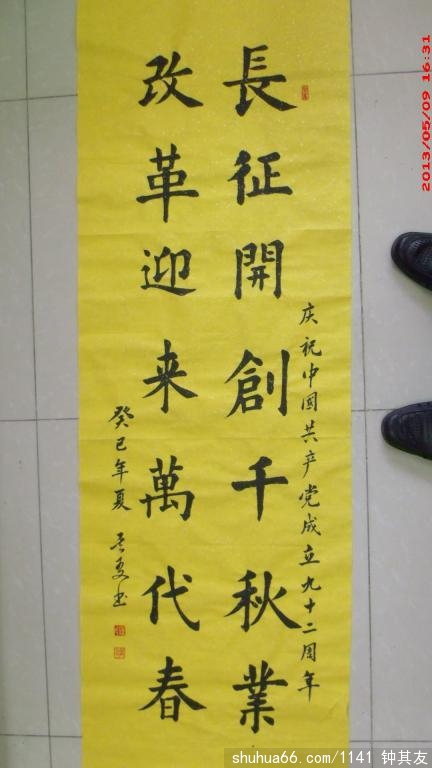 長征開創千秋業
庆祝中国共产党成立九十二周年
改革迎来萬代春
癸巳年夏
书
2013/05/09 16:31
shuhua66.com/1141 钟其友